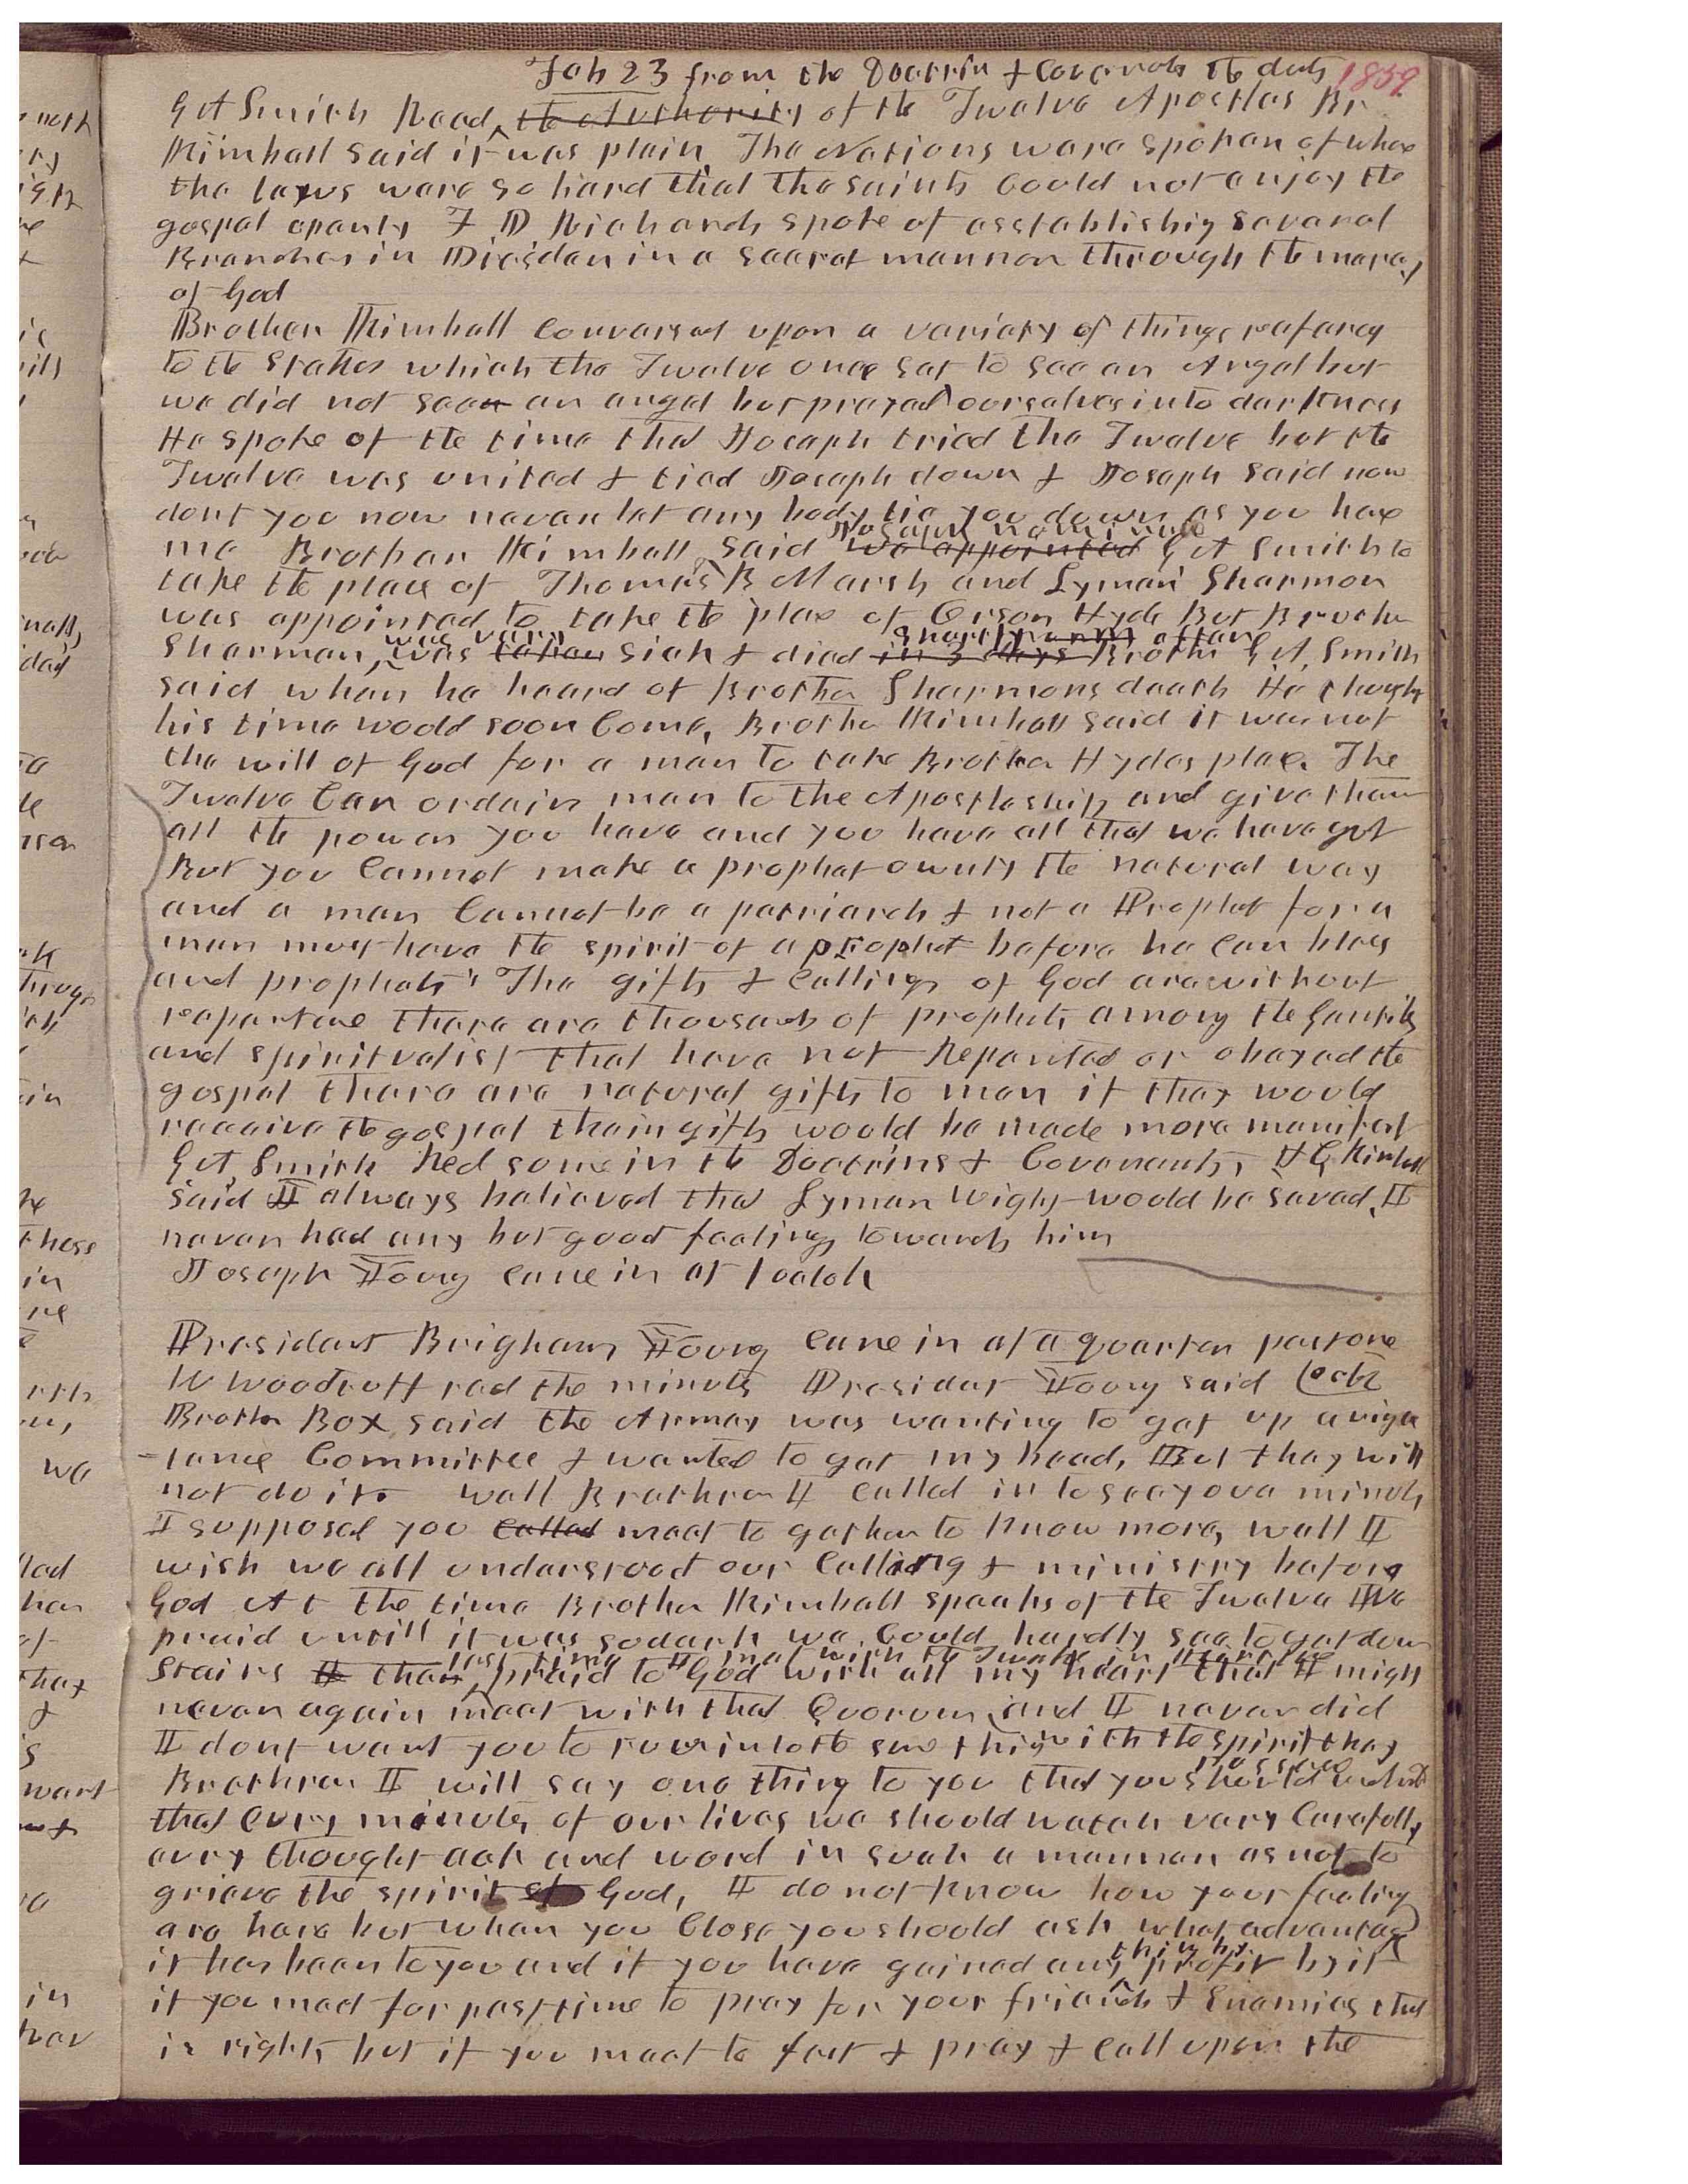 Feb 23 from the Doctrin & Covenants the duty 1859
G A Smith Read ^ the Authority of the Twelve Apostles Br
Kimball said it was plain. The Nations were spoken of whare
the laws were so hard that the saints Could not enjoy the
gospel openly F D Richards spoke of esstablishig several
Branches in Dresden in a secret manner through the mercy
of God
Brother Kimball Conversed upon a variety of things refering
to the Stakes which the Twelve once sat to see an Angel but
we did not seee an angel but prayed ourselves into darkness
He spoke of the time that Joseph tried the Twelve but the
Twelve was united & tied Joseph down & Joseph said now
dont you now never let any body tie you down as you have
me Brother Kimball, said Joseph nominated we appointed G A Smith to
take the place of Thomas B Marsh and Lyman Sherman
was appointed to take the place of Orson Hyde But Brother
Sherman, ^ was very was taken sick & died in 3 days shortly after Brother G A, Smith
said when he heard of Brother Shermons death He thought
his time would soon Come, Brother Kimball said it was not
the will of God for a man to take Brother Hydes place. The
Twelve Can ordain men to the Apostleship and give them
all the power you have and you have all that we have got
But you Cannot make a prophet ownly the natural way
and a man Cannot be a patriarch & not a Prophet for a
man must have the spirit of a prophet before he can bless
and prophets' The gifts & Callings of God are without
repentance there are thousands of prophets among the Gentiles
and spiritualist that have not Repented or obeyed the
gospel there are natural gifts to men if they would
receive the gospel their gifts would be made more manifest
G A, Smith Red some in the Doctrins & Covenants, H C Kimball
said I always believed that Lyman Wight would be saved, I
never had any but good feelings towards him
Joseph Young came in at 1 oclok
President Brigham Young came in at a quarter past one
W Woodruff red the minuts President Young said Lock
Brother Box said the Armay was wanting to get up a vigi
-lance Committee & wanted to get my head, But they will
not do it. Well Brethren I called in to see you a minute,
I supposed you called meet to gether to know more, well I
wish we all understood our Calling & ministry before
God At the time Brother Kimball speaks of the Twelve We
praid untill it was so dark we Could hardly see to get down
stairs I than, ^ last time I met with the Twelve in praid to God with all my heart that I might
never again meet with that Quorum, and I never did
I dont want you to run into the same thing with the spirit they
Brethren I will say one thing to you that you should
that evry minute, of our lives we should watch very Carefully
evry thought ack and word in such a mannar as not to
grieve the spirit of God, I do not know how your feelings
are here but when you Close you should ask what advantage
it has been to you and if you have gained any thing by profit by it
if you med for past time to pray for your friends & Enemies that
is right, but if you meet to fast & pray & call upon the